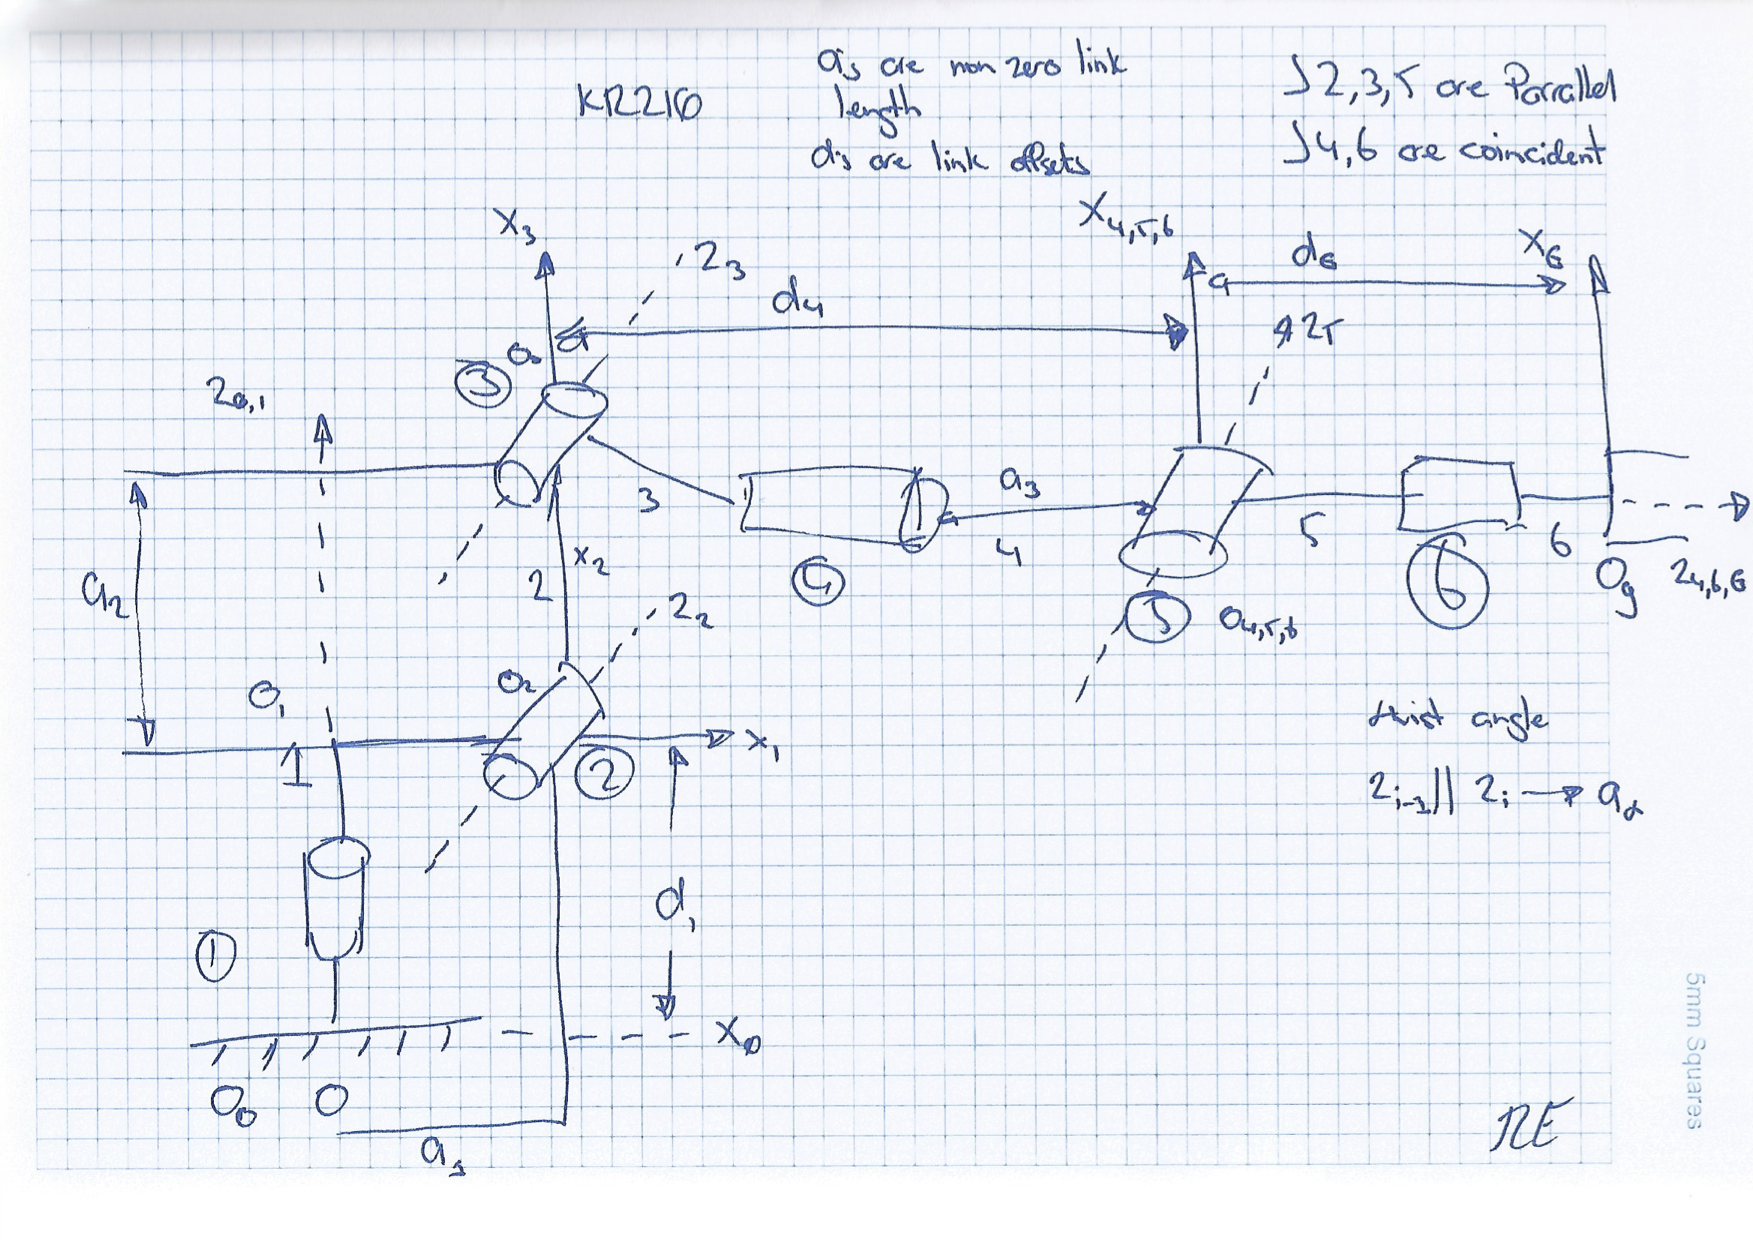 KR210
a's are non zero link
length
d's are link offsets
J2,3,5 are Parrallel
J4,6 are coincident
X3
Z3
d4
X4,5,6
d6
XG
Z5
Z0,1
3
a2
3
4
a3
4
5
5
6
6
Og
Z4,6,G
O4,5,6
X2
2
Z2
O1
O2
1
2
X1
twist angle
Zi-1 || Zi → aα
d1
1
X0
O0
O
a1
RE
5mm Squares